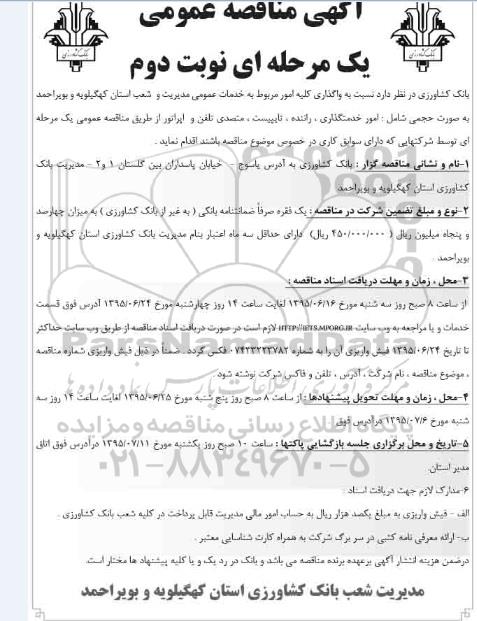 آگهی مناقصه عمومی
یک مرحله ای نوبت دوم
بانک کشاورزی
بانک کشاورزی
بانک کشاورزی در نظر دارد نسبت به واگذاری کلیه امور مربوط به خدمات عمومی مدیریت و شعب استان کهگیلویه و بویراحمد
به صورت حجمی شامل : امور خدمتگذاری ، راننده ، تایپیست ، متصدی تلفن و اپراتور از طریق مناقصه عمومی یک مرحله
ای توسط شرکتهایی که دارای سوابق کاری در خصوص موضوع مناقصه باشند اقدام نماید .
۱-نام و نشانی مناقصه گزار : بانک کشاورزی به آدرس یاسوج - خیابان پاسداران بین گلستان ۱ و۲ - مدیریت بانک
کشاورزی استان کهگیلویه و بویراحمد
۲-نوع و مبلغ تضمین شرکت در مناقصه : یک فقره صرفاً ضمانتنامه بانکی ( به غیر از بانک کشاورزی ) به میزان چهارصد
و پنجاه میلیون ریال ( ۴۵۰/۰۰۰/۰۰۰ ریال) دارای حداقل سه ماه اعتبار بنام مدیریت بانک کشاورزی استان کهگیلویه و
بویراحمد .
۳-محل ، زمان و مهلت دریافت اسناد مناقصه :
از ساعت ۸ صبح روز سه شنبه مورخ ۱۳۹۵/۰۶/۱۶ لغایت ساعت ۱۴ روز چهارشنبه مورخ ۱۳۹۵/۰۶/۲۴ آدرس فوق قسمت
خدمات و یا مراجعه به وب سایت HTTP://IETS.MPORG.IR لازم است در صورت دریافت اسناد مناقصه از طریق وب سایت حداکثر
تا تاریخ ۱۳۹۵/۰۶/۲۴ فیش واریزی آن را به شماره ۰۷۴۳۳۲۲۲۷۸۲ فکس گردد . ضمناً در ذیل فیش واریزی شماره مناقصه
، موضوع مناقصه ، نام شرکت ، آدرس ، تلفن و فاکس شرکت نوشته شود
۴-محل ، زمان و مهلت تحویل پیشنهادها : از ساعت ۸ صبح روز پنج شنبه مورخ ۱۳۹۵/۰۶/۲۵ لغایت ساعت ۱۴ روز سه
شنبه مورخ ۱۳۹۵/۰۷/۶ درآدرس فوق
۵-تاریخ و محل برگزاری جلسه بازگشایی پاکتها : ساعت ۱۰ صبح روز یکشنبه مورخ ۱۳۹۵/۰۷/۱۱ درآدرس فوق اتاق
مدیر استان.
۶-مدارک لازم جهت دریافت اسناد :
الف - فیش واریزی به مبلغ یکصد هزار ریال به حساب امور مالی مدیریت قابل پرداخت در کلیه شعب بانک کشاورزی .
ب- ارائه معرفی نامه کتبی در سر برگ شرکت به همراه کارت شناسایی معتبر .
درضمن هزینه انتشار آگهی برعهده برنده مناقصه می باشد و بانک در رد یک و یا کلیه پیشنهاد ها مختار است.
مدیریت شعب بانک کشاورزی استان کهگیلویه و بویراحمد
ParsNamadData
پایگاه اطلاع رسانی مناقصه و مزایده
۰۲۱-۸۸۳۴۹۶۷۰-۵